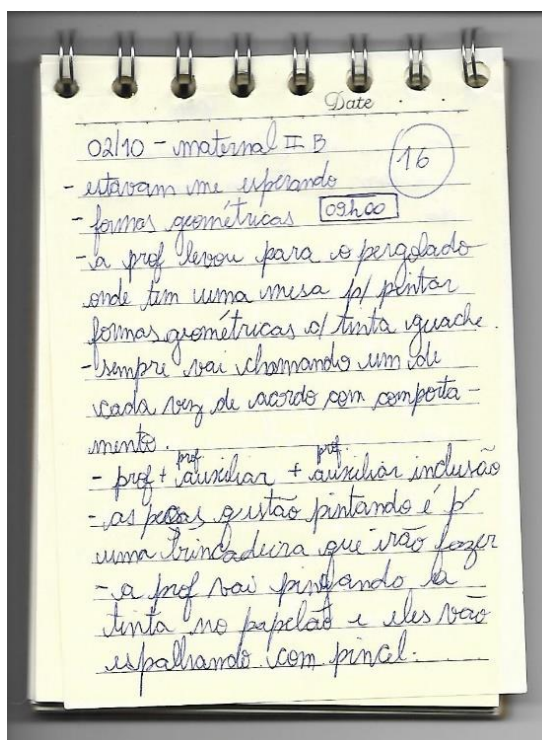 Date
02/10 - maternal II B
16
- estavam me esperando
- formas geométricas 09h00
- a prof levou para o pergolado
onde tem uma mesa p/ pintar
formas geométricas c/ tinta guache.
- sempre vai chamando um de
cada vez de acordo com comporta-
mento.
- prof + prof auxiliar + prof. auxiliar inclusão
- as peças q estão pintando é p/
uma brincadeira que irão fazer
- a prof vai pingando a
tinta no papelão e eles vão
espalhando com pincel.